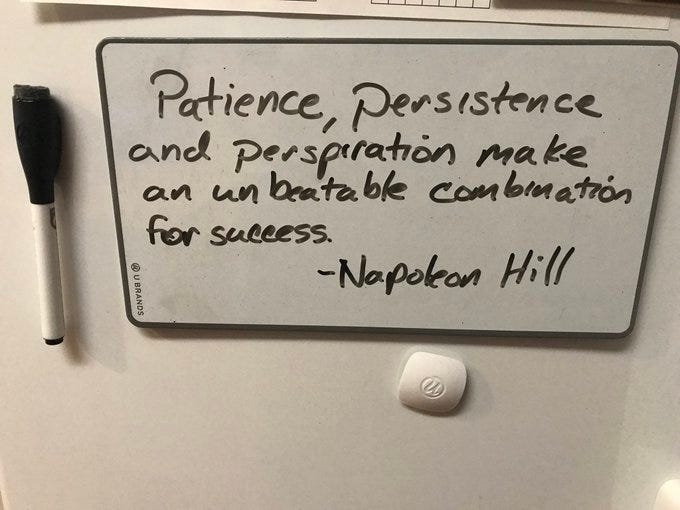 Patience, persistence
and perspiration make
an unbeatable combination
for success.
-Napoleon Hill
U BRANDS